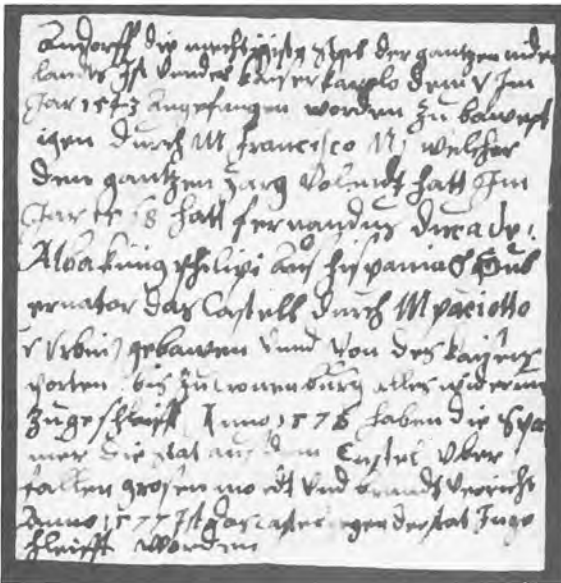 Andorff die mechtigiste Stat der gantzen nider
landes Ist under kaiser karolo dem V Im
Jar 1543 Angefangen worden zu bawest
igen durch M francisco welcher
den gantzen zarg volendt hatt Im
Jar hatt fernandus duca de
Alba kunig philipi aus hispanias Gub
ernator das Castell durch M paciotto
v Urbin gebawen unnd von des kaysers
porten bis zu cronenburg alles niderum
zugeschleifft Anno 1576 haben die Spa
nier die stat aus dem Castel uber
fallen grosen mordt und brandt vericht
Anno 1577 Ist das castel gegen der stat Inge
schleifft worden